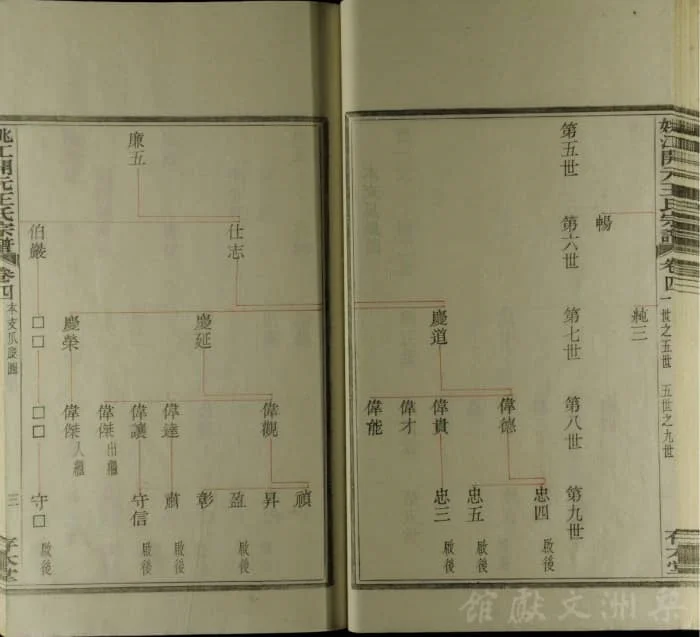 姚江開元王氏宗譜
卷四
一世之五世 五世之九世
存本堂
暢
純三
第五世
第六世
第七世
第八世
第九世
慶道
偉德
偉貴
偉才
偉能
忠四
啟後
忠五
啟後
忠三
啟後
廉五
仕志
伯嚴
慶延
慶榮
□□
偉觀
偉達
偉讓
偉傑
出繼
偉傑
入繼
□□
禎
昇
盈
啟後
彰
肅
啟後
守信
啟後
守□
啟後
姚江開元王氏宗譜
卷四
本支瓜瓞圖
三
存本堂
梨洲文獻館